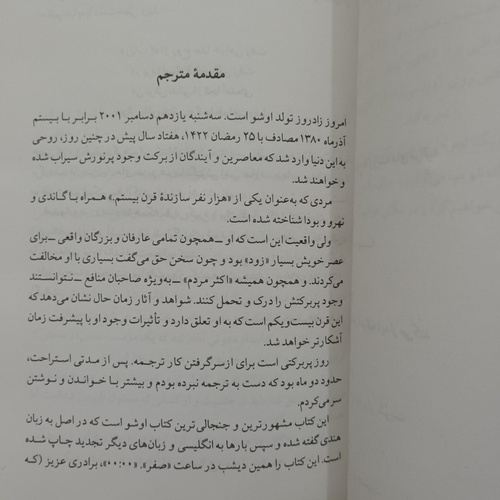 مقدمهٔ مترجم
امروز زادروز تولد اوشو است. سه‌شنبه یازدهم دسامبر ۲۰۰۱ برابر با بیستم
آذرماه ۱۳۸۰ مصادف با ۲۵ رمضان ۱۴۲۲، هفتاد سال پیش در چنین روز، روحی
به این دنیا وارد شد که معاصرین و آیندگان از برکت وجود پرنورش سیراب شده
و خواهند شد.
مردی که به‌عنوان یکی از «هزار نفر سازندهٔ قرن بیستم» همراه با گاندی و
نهرو و بودا شناخته شده است.
ولی واقعیت این است که او ــ همچون تمامی عارفان و بزرگان واقعی ــ برای
عصر خویش بسیار «زود» بود و چون سخن حق می‌گفت بسیاری با او مخالفت
می‌کردند. و همچون همیشه «اکثر مردم» ــ به‌ویژه صاحبان منافع ــ نتوانستند
وجود پربرکتش را درک و تحمل کنند. شواهد و آثار زمان حال نشان می‌دهد که
این قرن بیست‌ویکم است که به او تعلق دارد و تأثیرات وجود او با پیشرفت زمان
آشکارتر خواهد شد.
روز پربرکتی است برای ازسرگرفتن کار ترجمه. پس از مدتی استراحت،
حدود دو ماه بود که دست به ترجمه نبرده بودم و بیشتر با خواندن و نوشتن
سر می‌کردم.
این کتاب مشهورترین و جنجالی‌ترین کتاب اوشو است که در اصل به زبان
هندی گفته شده و سپس بارها به انگلیسی و زبان‌های دیگر تجدید چاپ شده
است. این کتاب را همین دیشب در ساعت «صفر»، «۰۰:۰۰»، برادری عزیز (که